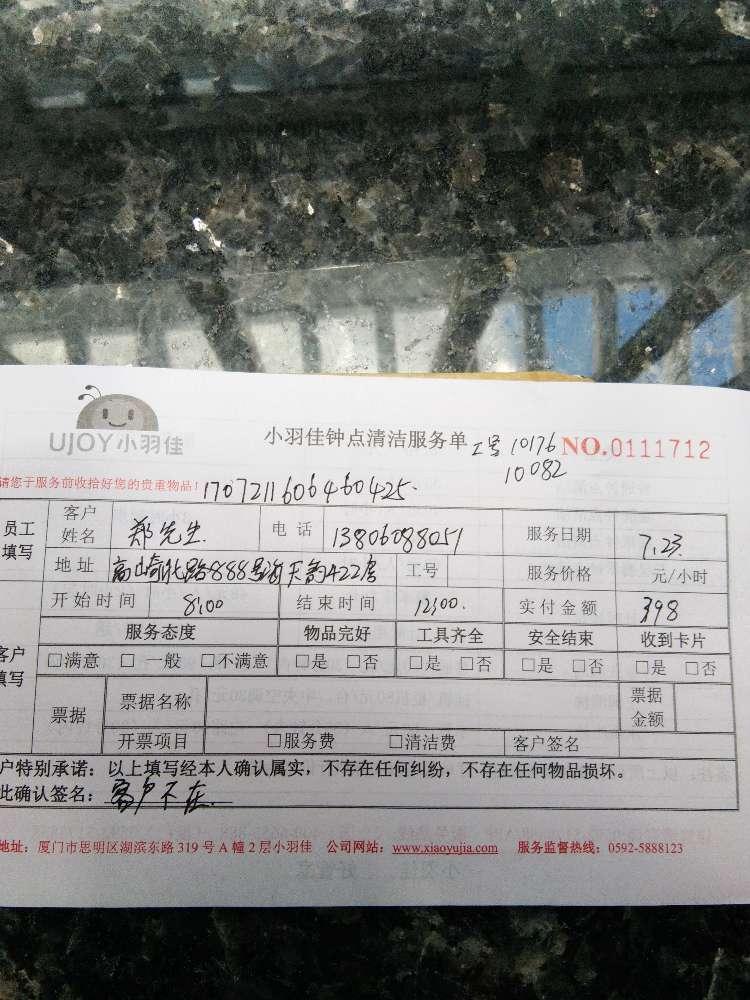 UJOY小羽佳 小羽佳钟点清洁服务单 工号 10176 NO.0111712
10082
请您于服务前收拾好您的贵重物品! 1707211606460425.
员工填写 客户姓名 郑先生. 电话 13806088051 服务日期 7.23.
地址 高崎北路888号 422房 工号 服务价格 元/小时
开始时间 8:00 结束时间 12:00. 实付金额 398
客户填写 服务态度 物品完好 工具齐全 安全结束 收到卡片
□满意 □一般 □不满意 □是 □否 □是 □否 □是 □否 □是 □否
票据 票据名称 票据金额
开票项目 □服务费 □清洁费 客户签名
户特别承诺：以上填写经本人确认属实，不存在任何纠纷，不存在任何物品损坏。
此确认签名：客户不在.
地址：厦门市思明区湖滨东路319号A幢2层小羽佳 公司网站：www.xiaoyujia.com 服务监督热线：0592-5888123